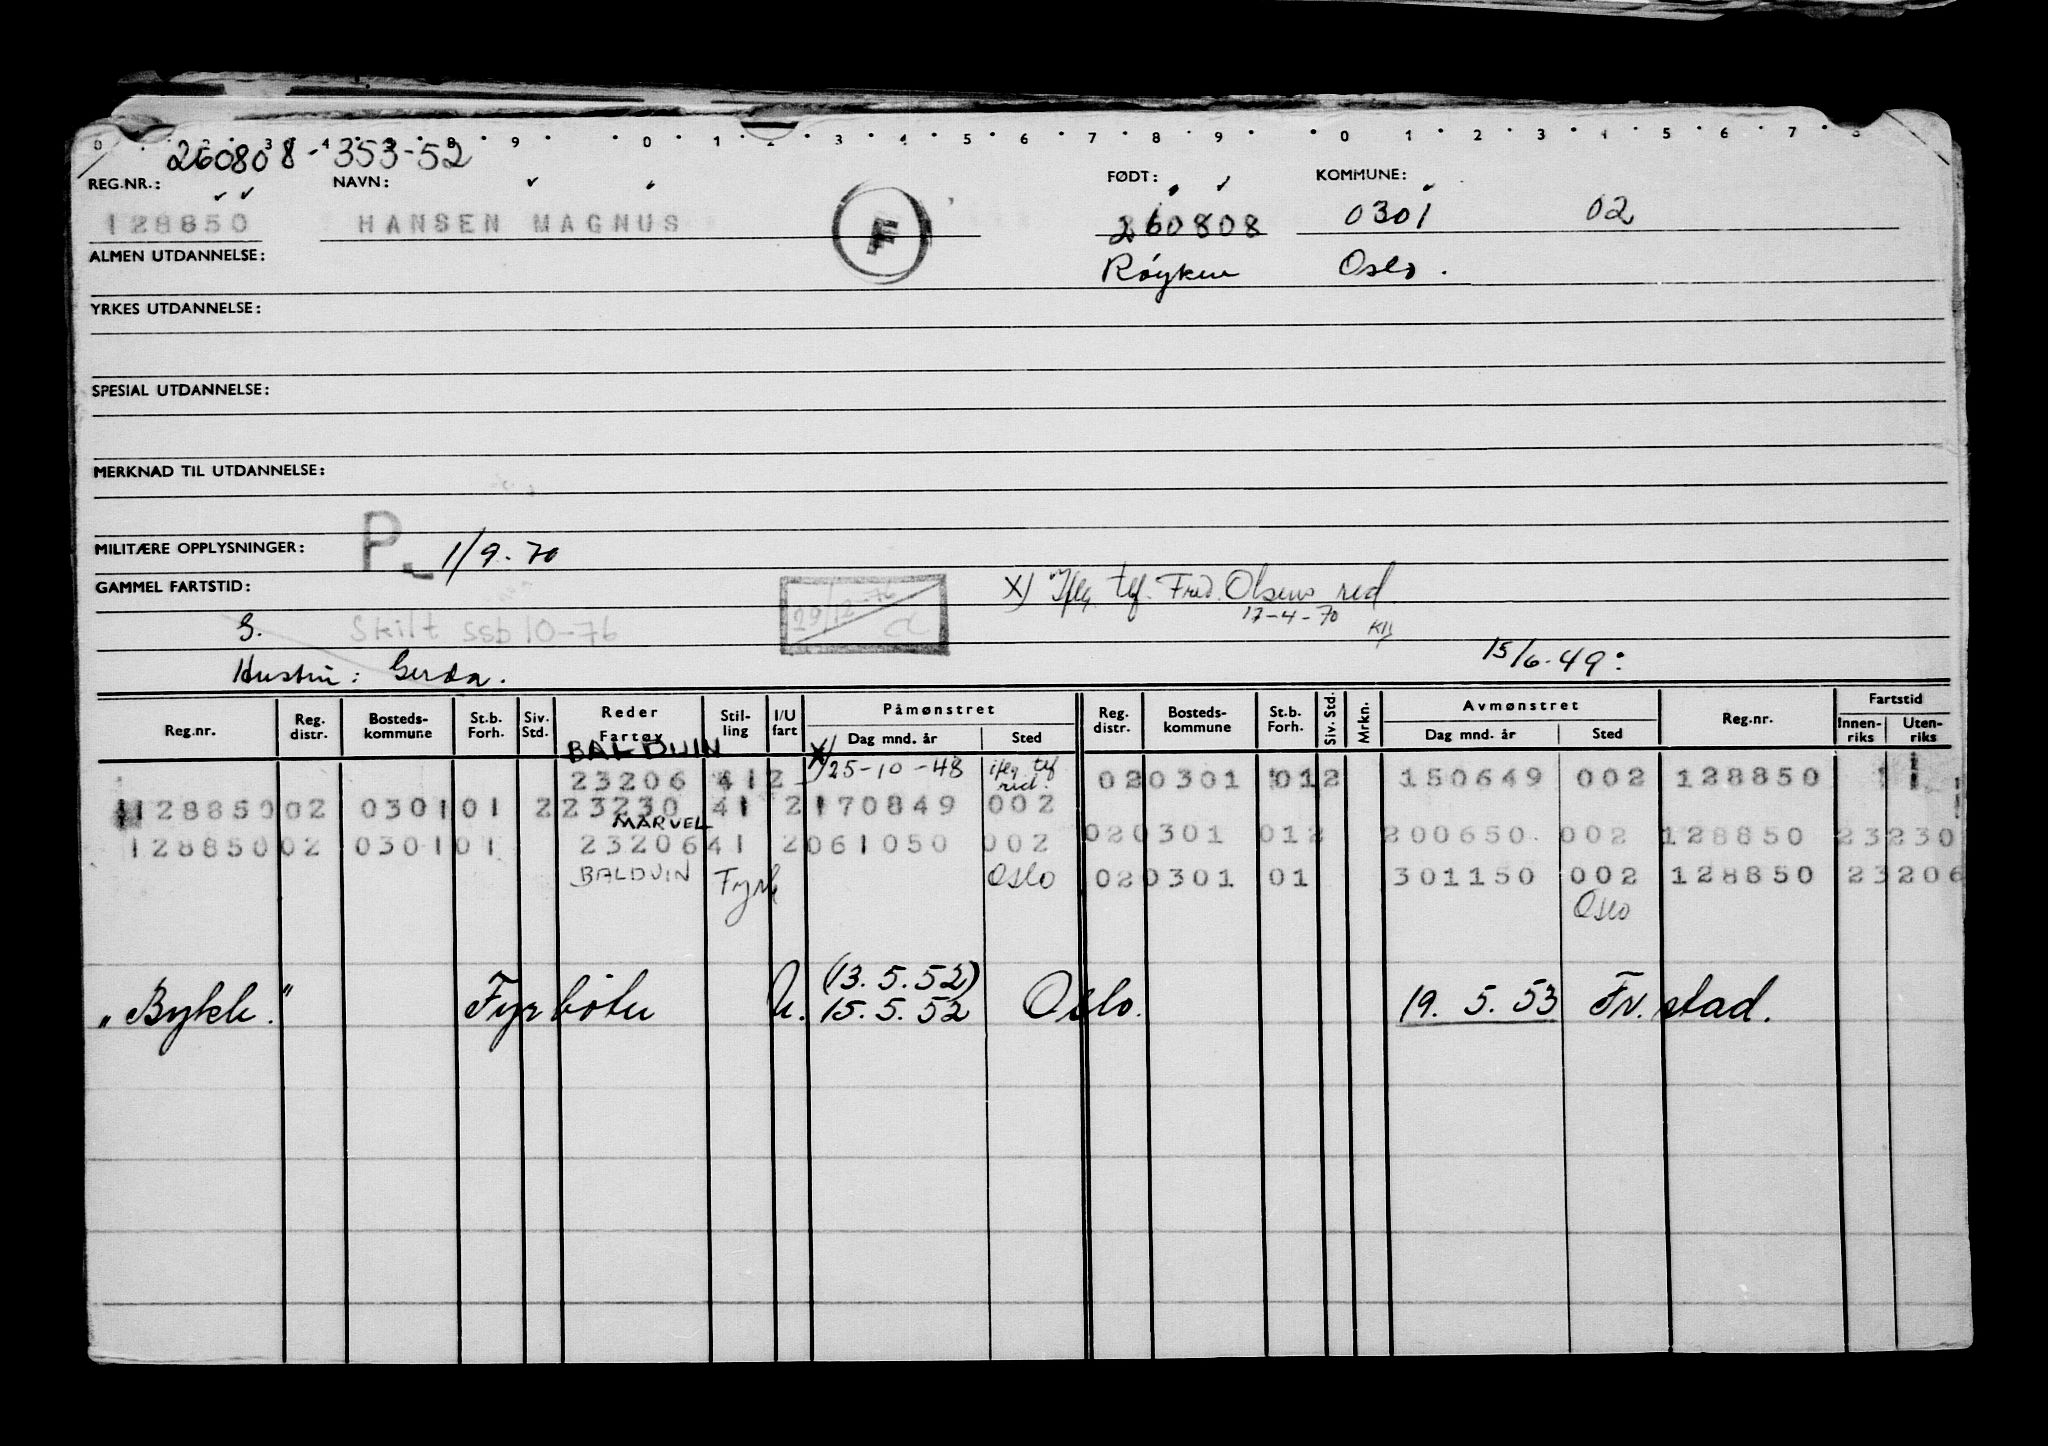 260808-353-52
REG.NR.: NAVN: FØDT: KOMMUNE:
128850 HANSEN MAGNUS F 260808 0301 02
ALMEN UTDANNELSE: Röyken Oslo.
YRKES UTDANNELSE:
SPESIAL UTDANNELSE:
MERKNAD TIL UTDANNELSE:
MILITÆRE OPPLYSNINGER: P 1/9-70
GAMMEL FARTSTID: X) iflg. tlf. Fred. Olsens red
29/12-76 17-4-70
G. Skilt ssb 10-76
15/6-49:
Hustru: Gerda.
Reg.nr. Reg. distr. Bosteds-kommune St.b. Forh. Siv. Std. Reder Fartøy Stil-ling I/U fart Påmønstret Dag mnd. år Sted Reg. distr. Bosteds-kommune St.b. Forh. Siv. Std. Mrkn. Avmønstret Dag mnd. år Sted Reg.nr. Fartstid Innen-riks Uten-riks
BALDUIN
23206 41 2 X) 25-10-48 iflg. tlf red. 02 0301 01 2 150649 002 128850
128850 02 0301 01 2 23230 41 2 170849 002
MARVEL
02 0301 01 2 200650 002 128850 23230
128850 02 0301 01 23206 41 2 061050 002
BALDUIN Fyrb Oslo 02 0301 01 301150 002 128850 23206
Oslo
(13.5.52)
"Bykle." Fyrbøter U. 15.5.52 Oslo. 19.5.53 Fr.stad.